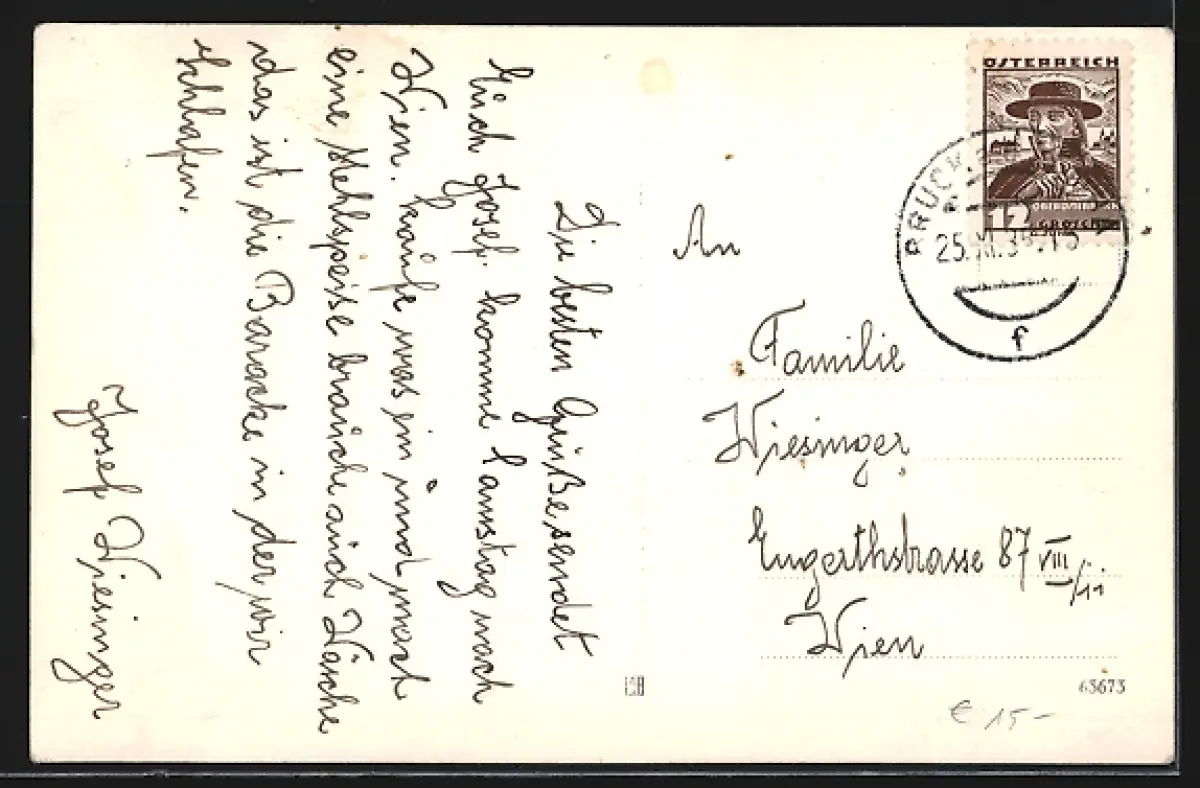 Die besten Grüße sendet
Euch Josef. komme Samstag nach
Wien. kaufe was ein und mach
eine Mehlspeiße brauche auch Wäsche
das ist die Baracke in der wir
schlafen.
Josef Wiesinger
ÖSTERREICH
12
GROSCHEN
BRUCK
25.XI.
f
An
Familie
Wiesinger
Engerthstrasse 87 VIII/11
Wien
63673
€ 15-